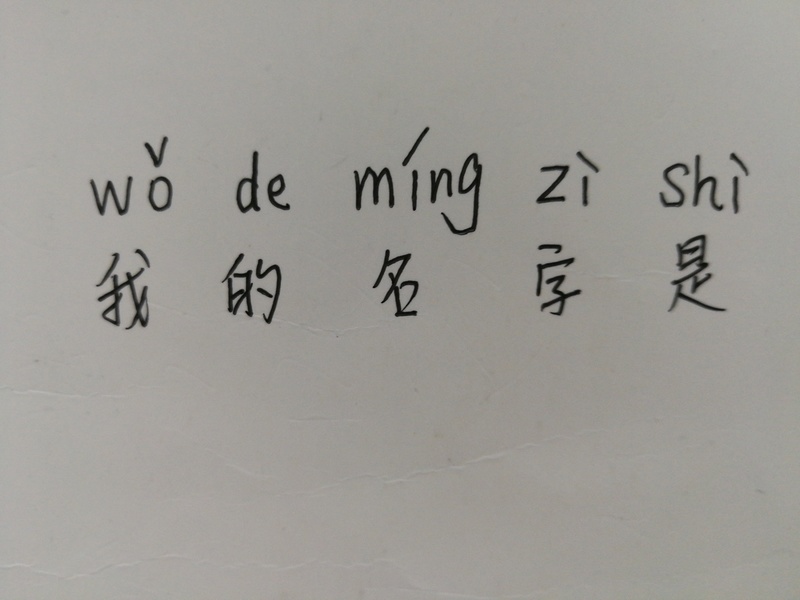 wǒ de míng zì shì
我 的 名 字 是